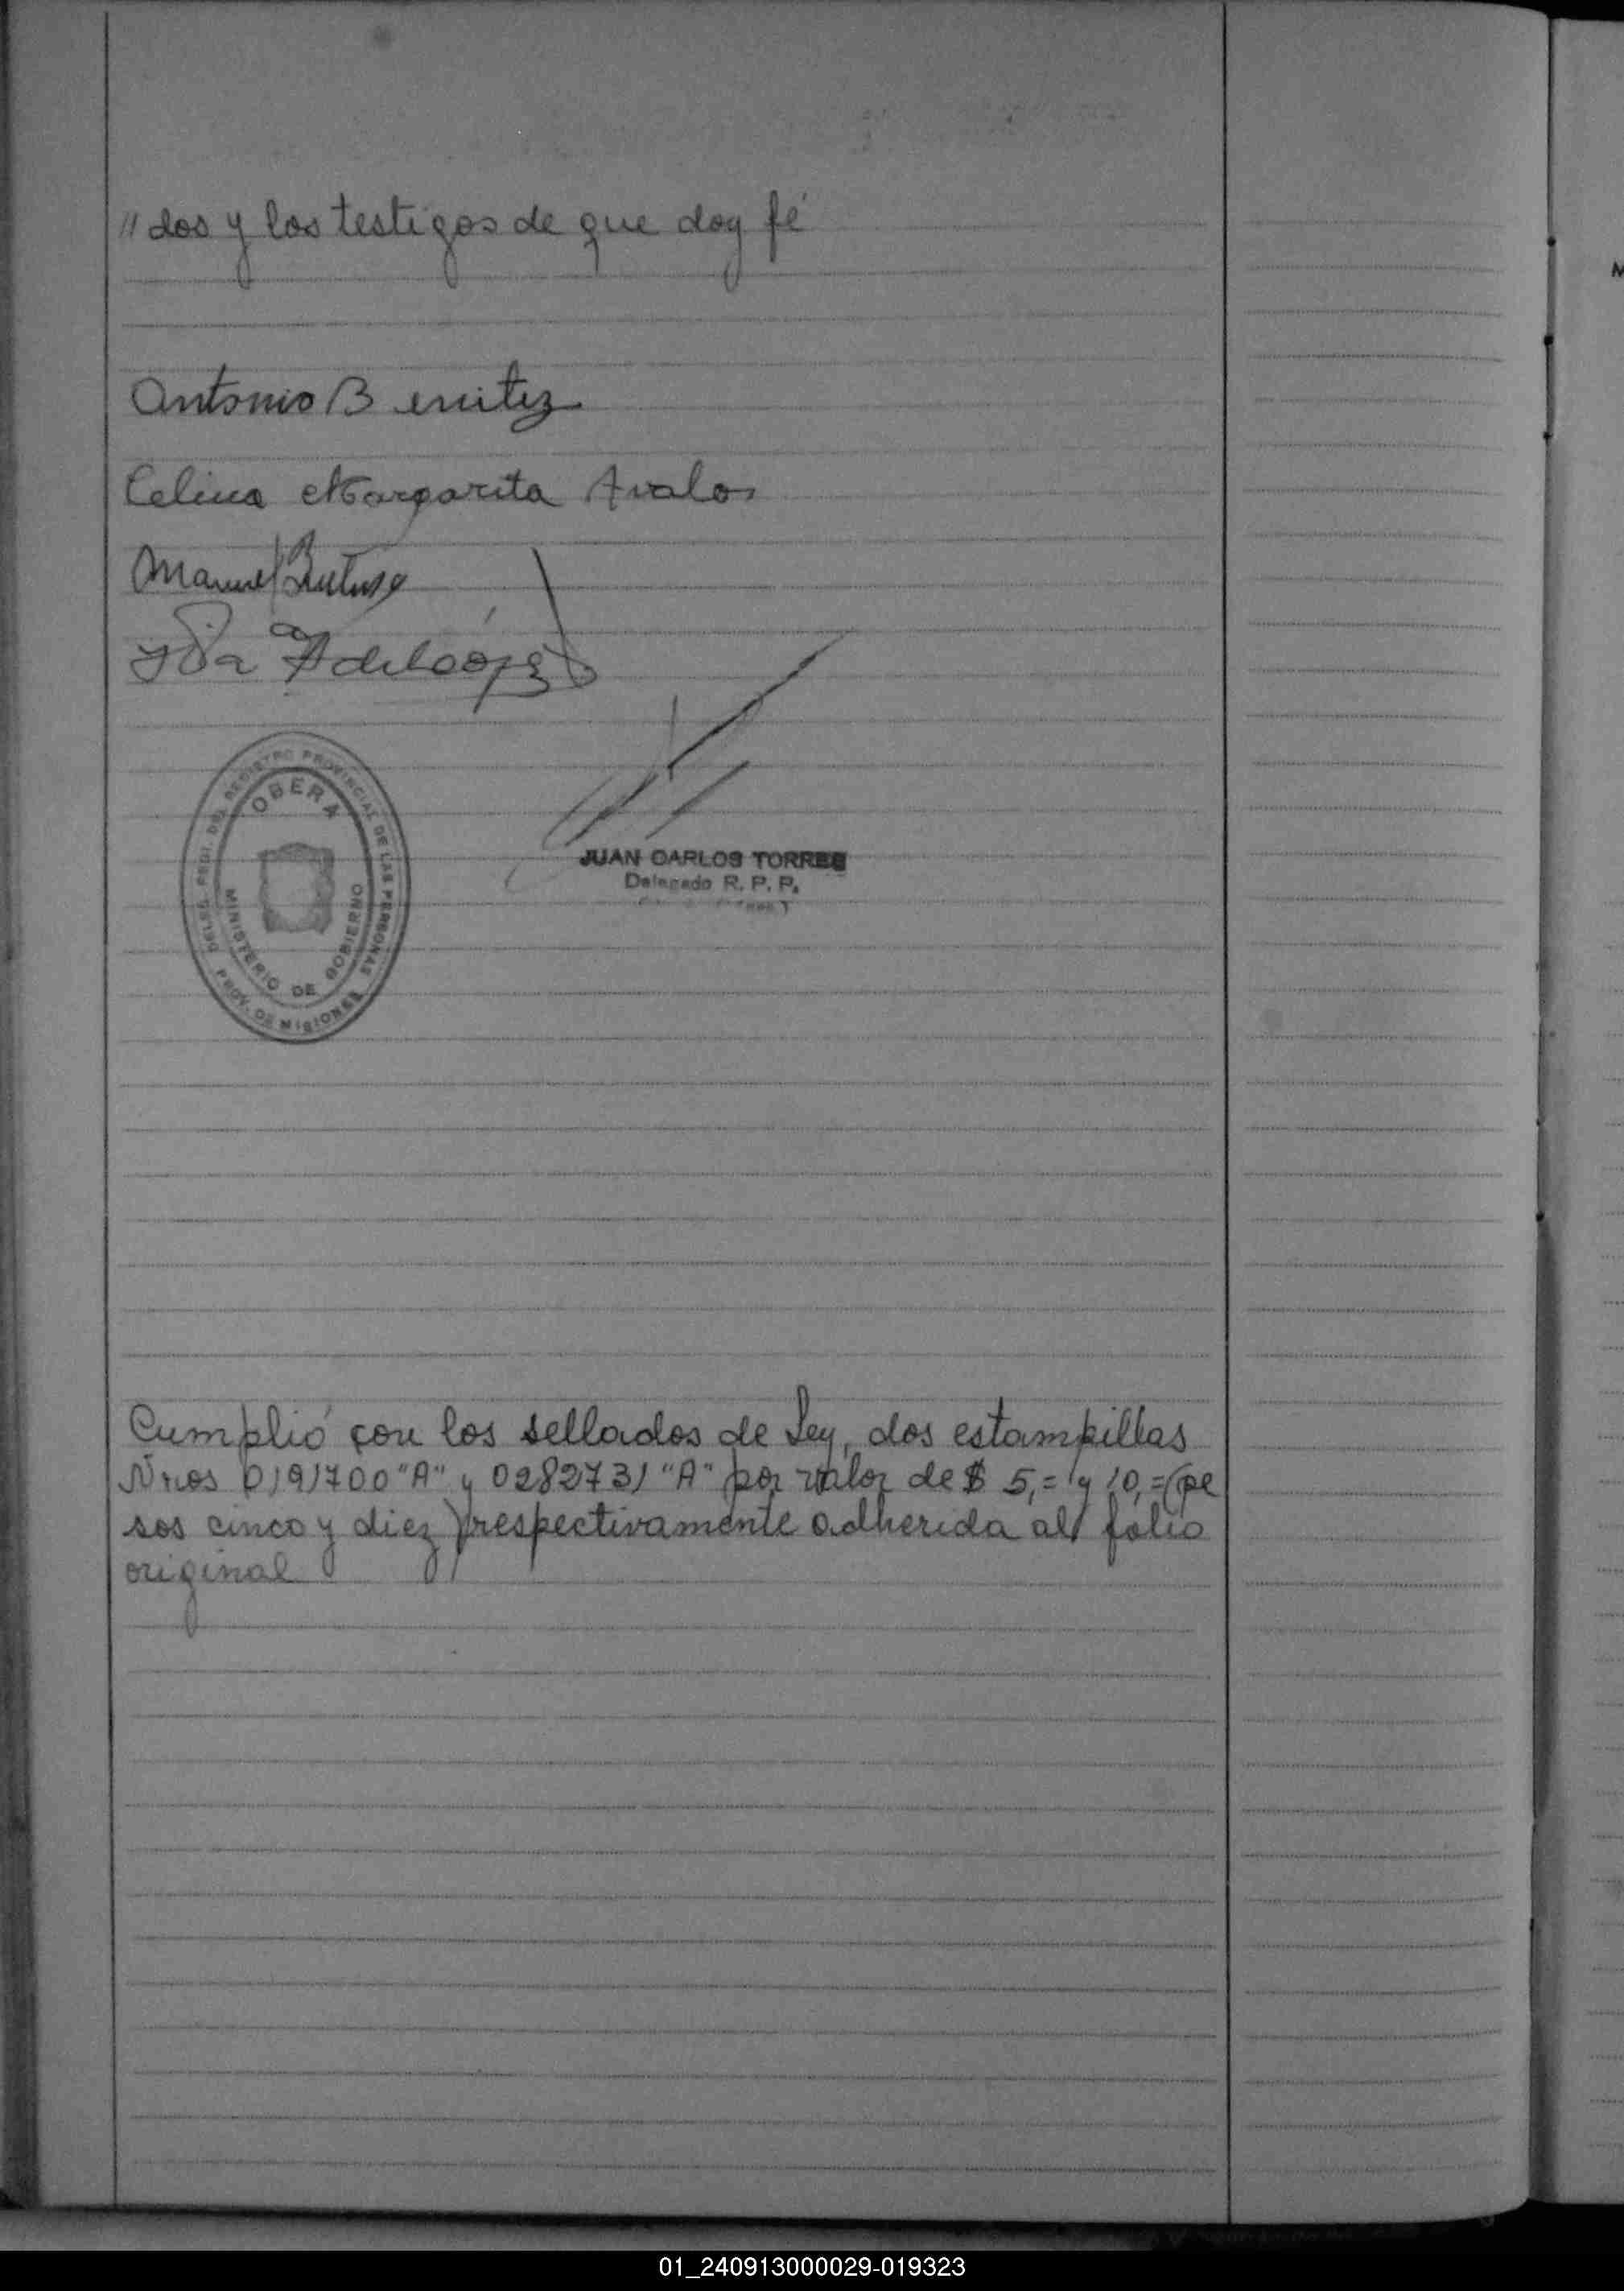 "dos y los testigos de que doy fé
Antonio Benitez
Celina Margarita Avalos
Manuel
DELEG. PEDI. DEL REGISTRO PROVINCIAL DE LAS PERSONAS
OBERA
MINISTERIO DE GOBIERNO
PROV. DE MISIONES
JUAN CARLOS TORRES
Delegado R. P. P.
Cumplió con los sellados de Ley, dos estampillas
Nros 0191700 "A" y 0282731 "A" por valor de $ 5,= y 10,= (pe
sos cinco y diez) respectivamente adherida al folio
original
01_240913000029-019323